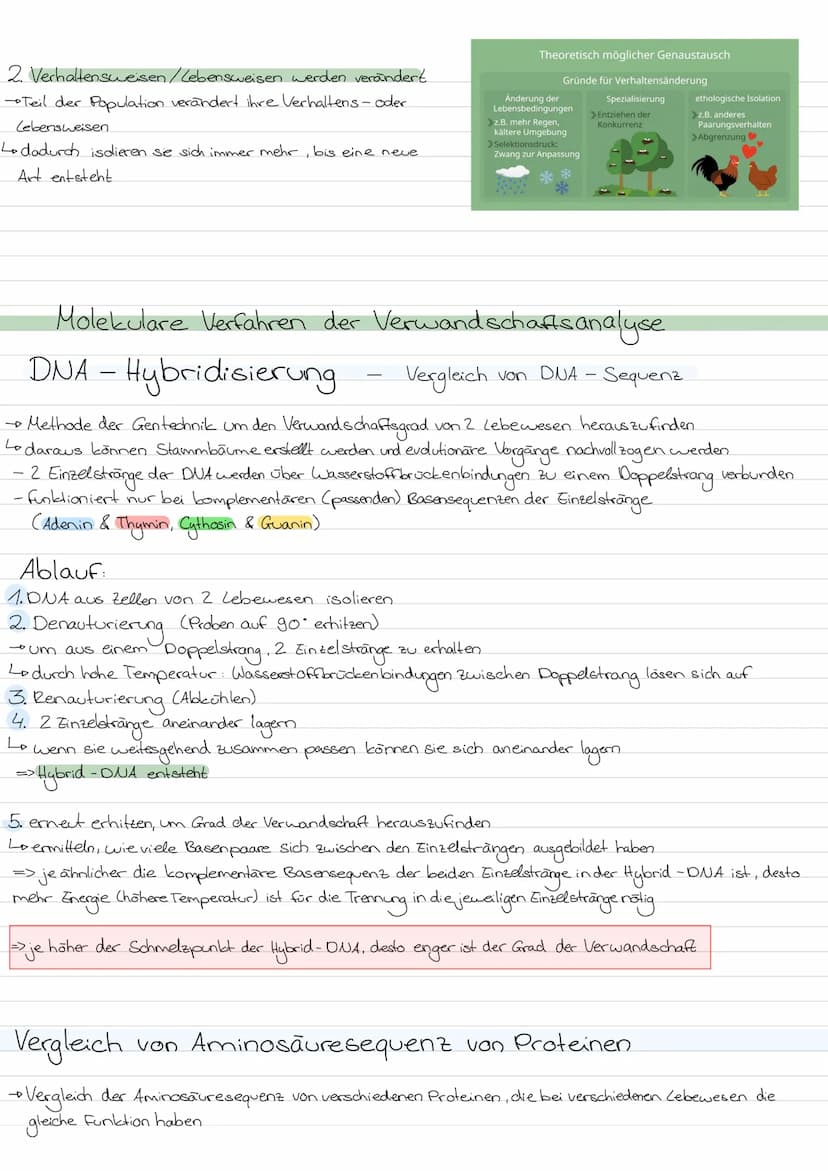 2. Verhaltensweisen/Lebensweisen werden verändert
→ Teil der Population verändert ihre Verhaltens- oder
Lebensweisen
↳ dadurch isolieren se sich immer mehr, bis eine neue
Art entsteht
Theoretisch möglicher Genaustausch
Gründe für Verhaltensänderung
Änderung der
Lebensbedingungen
z.B. mehr Regen,
kältere Umgebung
Selektionsdruck:
Zwang zur Anpassung
Spezialisierung
Entziehen der
Konkurrenz
ethologische Isolation
z.B. anderes
Paarungsverhalten
Abgrenzung
Molekulare Verfahren der Verwandschaftsanalyse
DNA - Hybridisierung - Vergleich von DNA - Sequenz
→ Methode der Gentechnik um den Verwandschaftsgrad von 2 Lebewesen herauszufinden
↳ daraus können Stammbäume erstellt werden und evolutionäre Vorgänge nachvollzogen werden
- 2 Einzelstränge der DNA werden über Wasserstoffbrückenbindungen zu einem Doppelstrang verbunden
- funktioniert nur bei komplementären (passenden) Basensequenzen der Einzelstränge
(Adenin & Thymin, Cythosin & Guanin)
Ablauf:
1. DNA aus Zellen von 2 Lebewesen isolieren
2. Denauturierung (Proben auf 90° erhitzen)
→ um aus einem Doppelstrang, 2 Einzelstränge zu erhalten
↳ durch hohe Temperatur: Wasserstoffbrückenbindungen zwischen Doppelstrang lösen sich auf
3. Renauturierung (Abkühlen)
4. 2 Einzelstränge aneinander lagern
↳ wenn sie weitesgehend zusammen passen können sie sich aneinander lagern
=> Hybrid - DNA entsteht
5. erneut erhitzen, um Grad der Verwandschaft herauszufinden
↳ ermitteln, wie viele Basenpaare sich zwischen den Einzelsträngen ausgebildet haben
=> je ähnlicher die komplementäre Basensequenz der beiden Einzelstränge in der Hybrid - DNA ist, desto
mehr Energie (höhere Temperatur) ist für die Trennung in die jeweiligen Einzelstränge nötig
=> je höher der Schmelzpunkt der Hybrid- DNA, desto enger ist der Grad der Verwandschaft
Vergleich von Aminosäuresequenz von Proteinen
→ Vergleich der Aminosäuresequenz von verschiedenen Proteinen, die bei verschiedenen Lebewesen die
gleiche Funktion haben